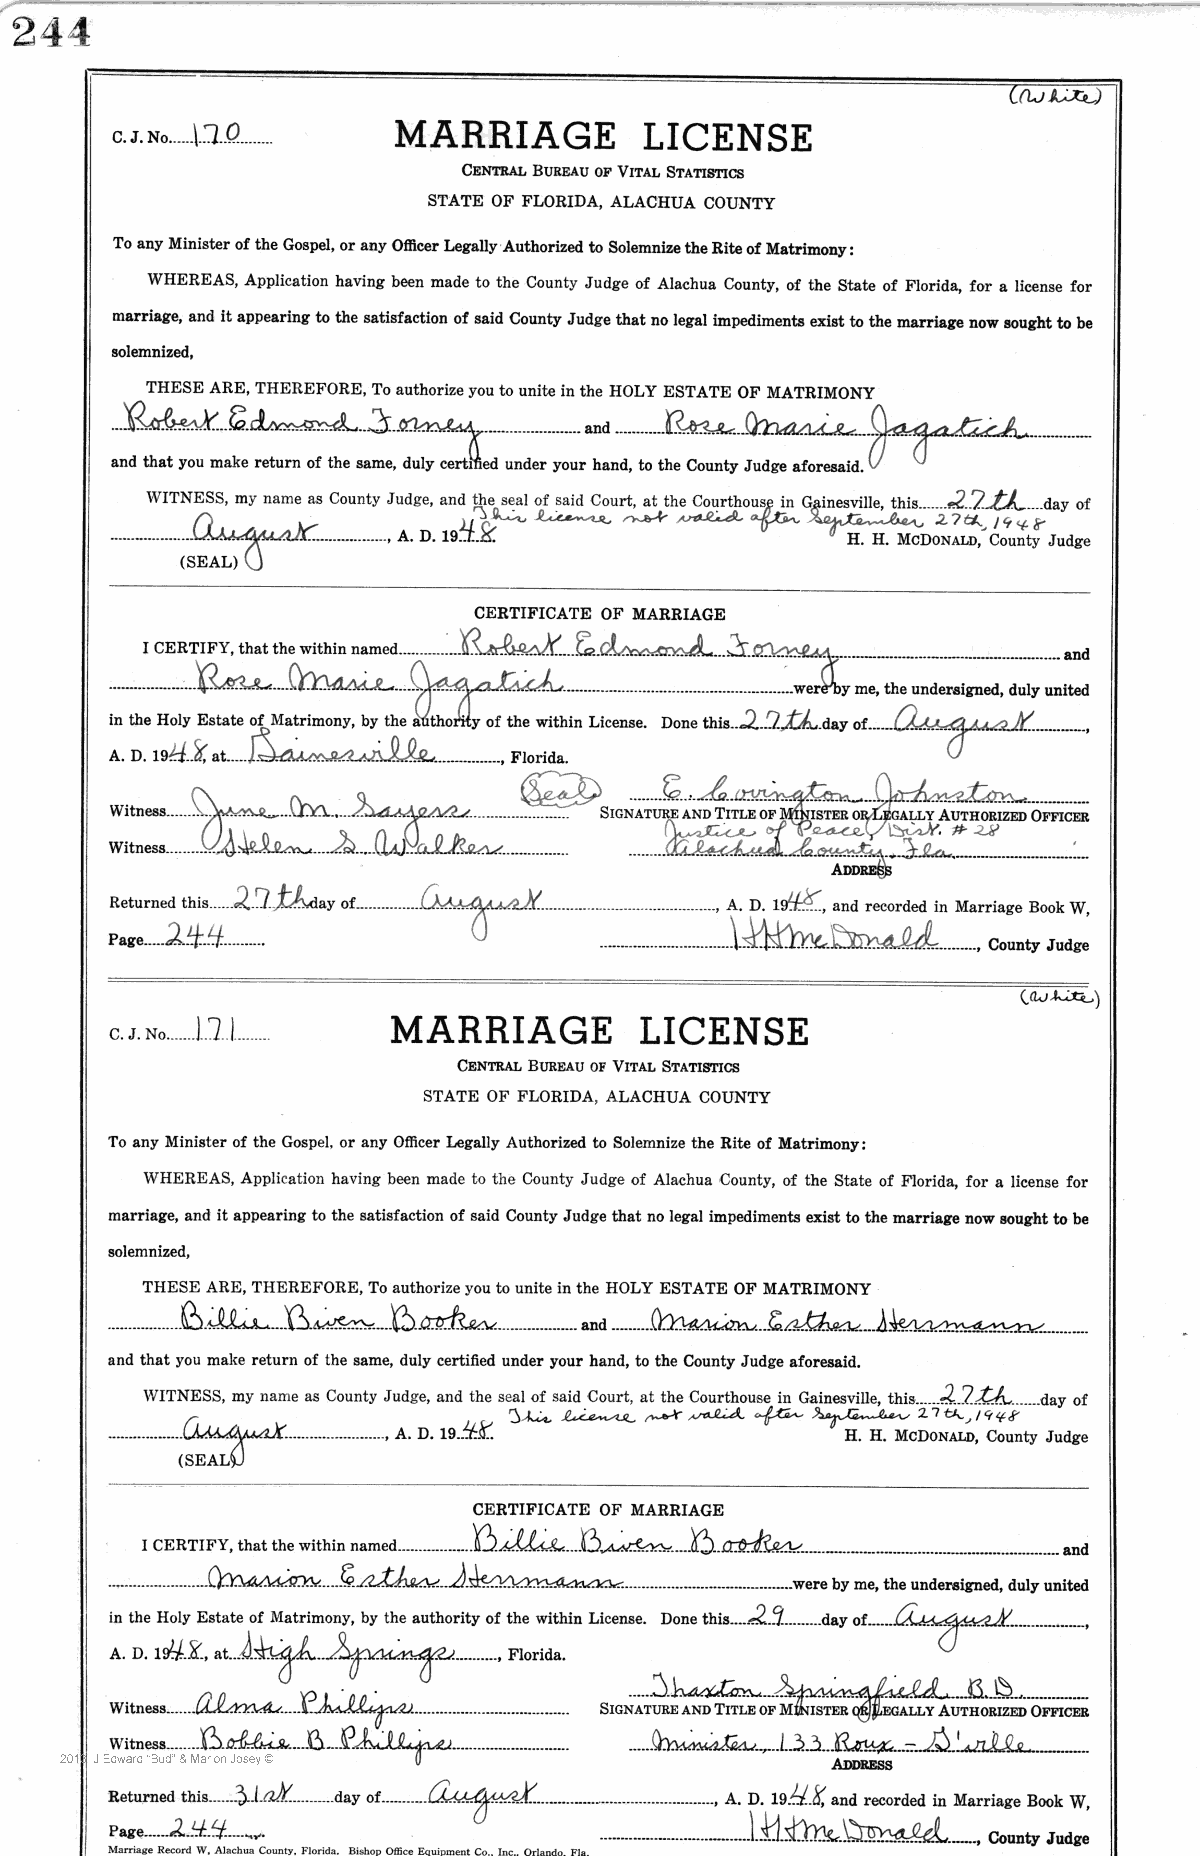 244
(White)
C. J. No. 170
MARRIAGE LICENSE
CENTRAL BUREAU OF VITAL STATISTICS
STATE OF FLORIDA, ALACHUA COUNTY
To any Minister of the Gospel, or any Officer Legally Authorized to Solemnize the Rite of Matrimony:
WHEREAS, Application having been made to the County Judge of Alachua County, of the State of Florida, for a license for
marriage, and it appearing to the satisfaction of said County Judge that no legal impediments exist to the marriage now sought to be
solemnized,
THESE ARE, THEREFORE, To authorize you to unite in the HOLY ESTATE OF MATRIMONY
Robert Edmond Forney and Rose Marie Jagatich
and that you make return of the same, duly certified under your hand, to the County Judge aforesaid.
WITNESS, my name as County Judge, and the seal of said Court, at the Courthouse in Gainesville, this 27th day of
This license not valid after September 27th, 1948
August, A. D. 1948.
H. H. MCDONALD, County Judge
(SEAL)
CERTIFICATE OF MARRIAGE
I CERTIFY, that the within named Robert Edmond Forney and
Rose Marie Jagatich were by me, the undersigned, duly united
in the Holy Estate of Matrimony, by the authority of the within License. Done this 27th day of August,
A. D. 1948, at Gainesville, Florida.
(Seal) E. Covington Johnston
Witness June M. Sayers SIGNATURE AND TITLE OF MINISTER OR LEGALLY AUTHORIZED OFFICER
Justice of Peace, Dist. # 28
Witness Helen S. Walker Alachua County, Fla.
ADDRESS
Returned this 27th day of August, A. D. 1948, and recorded in Marriage Book W,
Page 244 HHMcDonald, County Judge
(White)
C. J. No. 171
MARRIAGE LICENSE
CENTRAL BUREAU OF VITAL STATISTICS
STATE OF FLORIDA, ALACHUA COUNTY
To any Minister of the Gospel, or any Officer Legally Authorized to Solemnize the Rite of Matrimony:
WHEREAS, Application having been made to the County Judge of Alachua County, of the State of Florida, for a license for
marriage, and it appearing to the satisfaction of said County Judge that no legal impediments exist to the marriage now sought to be
solemnized,
THESE ARE, THEREFORE, To authorize you to unite in the HOLY ESTATE OF MATRIMONY
Billie Biven Booker and Marion Esther Herrmann
and that you make return of the same, duly certified under your hand, to the County Judge aforesaid.
WITNESS, my name as County Judge, and the seal of said Court, at the Courthouse in Gainesville, this 27th day of
This license not valid after September 27th, 1948
August, A. D. 1948.
H. H. MCDONALD, County Judge
(SEAL)
CERTIFICATE OF MARRIAGE
I CERTIFY, that the within named Billie Biven Booker and
Marion Esther Herrmann were by me, the undersigned, duly united
in the Holy Estate of Matrimony, by the authority of the within License. Done this 29 day of August,
A. D. 1948, at High Springs, Florida.
Thaxton Springfield B.D.
Witness Alma Phillips SIGNATURE AND TITLE OF MINISTER OR LEGALLY AUTHORIZED OFFICER
Witness Bobbie B Phillips Minister, 133 Roux - G'ville
J Edward "Bud" & Marion Josey ©
ADDRESS
Returned this 31st day of August, A. D. 1948, and recorded in Marriage Book W,
Page 244 HHMcDonald, County Judge
Marriage Record W, Alachua County, Florida. Bishop Office Equipment Co., Inc., Orlando, Fla.